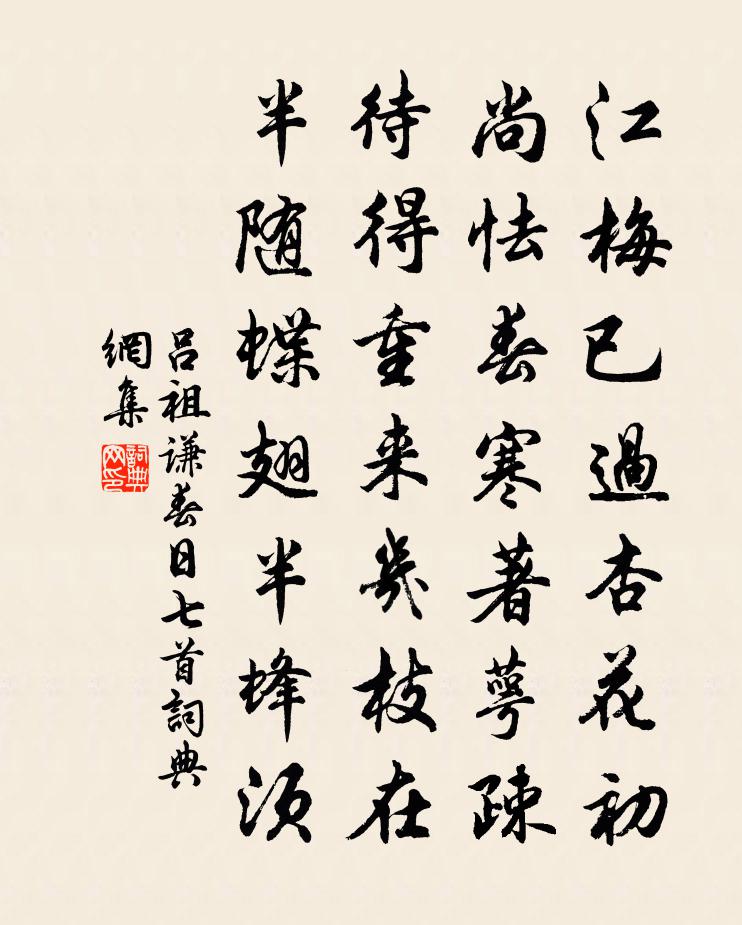 江梅已過杏花初
尚怯春寒著萼疎
待得重来幾枝在
半随蝶翅半蜂須
呂祖謙春日七首詞典
網集
詞典
网印